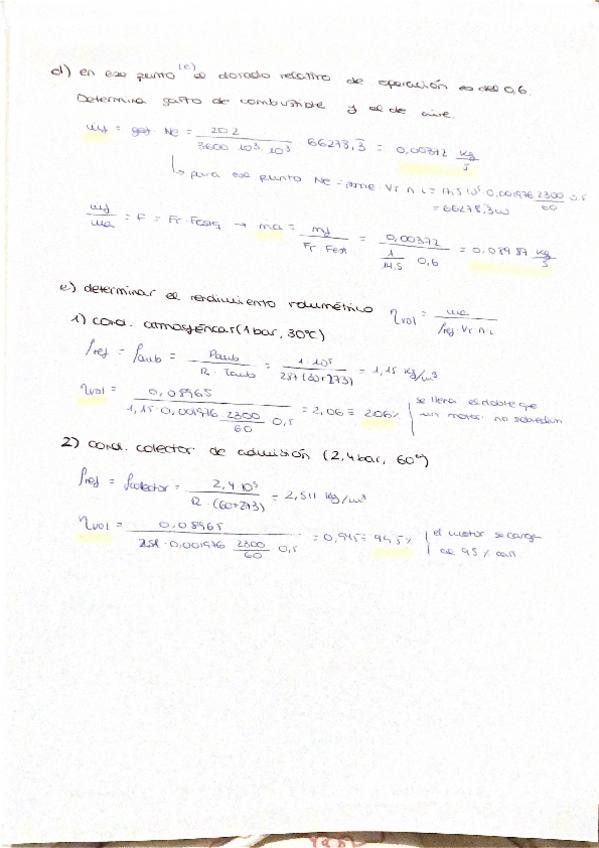 d) en ese punto (e) el dosado relativo de operación es del 0,6.
Determina gasto de combustible y el de aire.
ṁf = gef · Ne = 202 / 3600 · 10³ · 10³ · 66273,3 = 0,00372 kg/s
↳ para ese punto Ne = pme · VT · n · i = 17,5 · 10⁵ · 0,001976 · 2300/60 · 0,5
= 66278,3 W
ṁf / ṁa = F = Fr · Festq → ṁa = ṁf / Fr · Fest = 0,00372 / (1/14,5 · 0,6) = 0,08987 kg/s
e) determinar el rendimiento volumétrico ηvol = ṁa / ρref · VT · n · i
1) cond. atmosféricas (1 bar, 30°C)
ρref = ρamb = Pamb / R · Tamb = 1 · 10⁵ / 287 (30+273) = 1,15 kg/m³
ηvol = 0,08965 / 1,15 · 0,001976 · 2300/60 · 0,5 = 2,06 ≡ 206% | se llena el doble que
un motor no sobrealim
2) cond. colector de admisión (2,4 bar, 60°)
ρref = ρcolector = 2,4 · 10⁵ / R · (60+273) = 2,511 kg/m³
ηvol = 0,08965 / 2,51 · 0,001976 · 2300/60 · 0,5 = 0,945 ≡ 94,5% | el motor se carga
al 95%